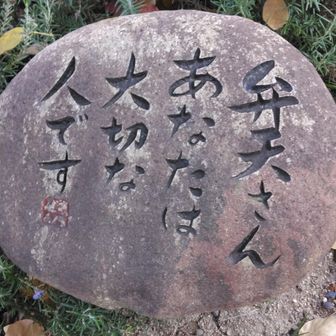 弁天さん
あなたは
大切な
人です